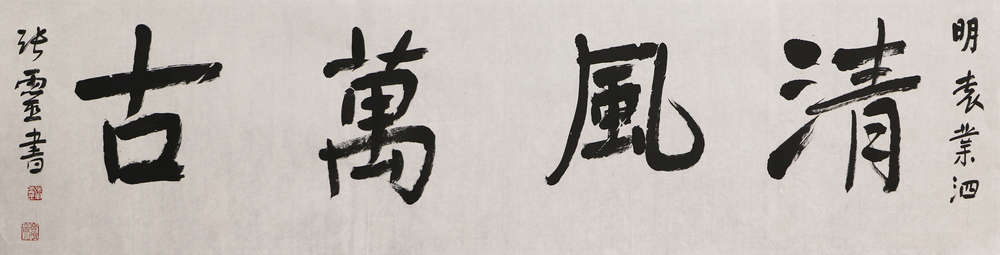 明袁業泗
清風萬古
張靈書